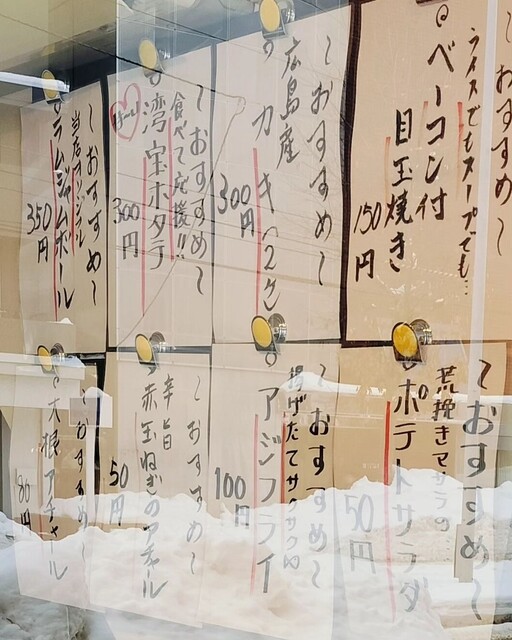 〜おすすめ〜
ライスでもスープでも…
ベーコン付
目玉焼き
150円
〜おすすめ〜
広島産
カキ(2ケ)
300円
〜おすすめ〜
食べて応援!!
湾宝ホタテ
300円
〜おすすめ〜
当店オリジナル
ラムジャムボール
350円
〜おすすめ〜
荒挽きマサラの
ポテトサラダ
50円
〜おすすめ〜
揚げたてサクサクの
アジフライ
100円
〜おすすめ〜
辛旨
赤玉ねぎのアチャール
50円
おすすめ〜
大根アチャール
80円